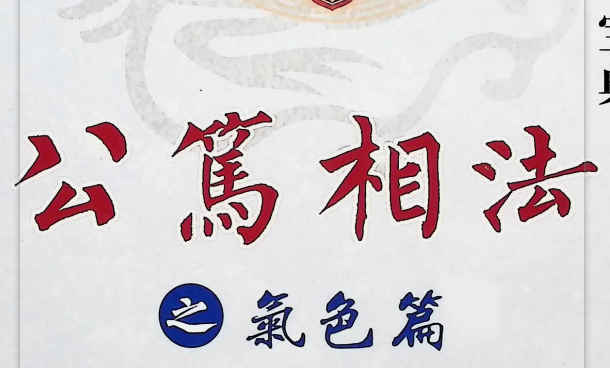 公篤相法
之氣色篇